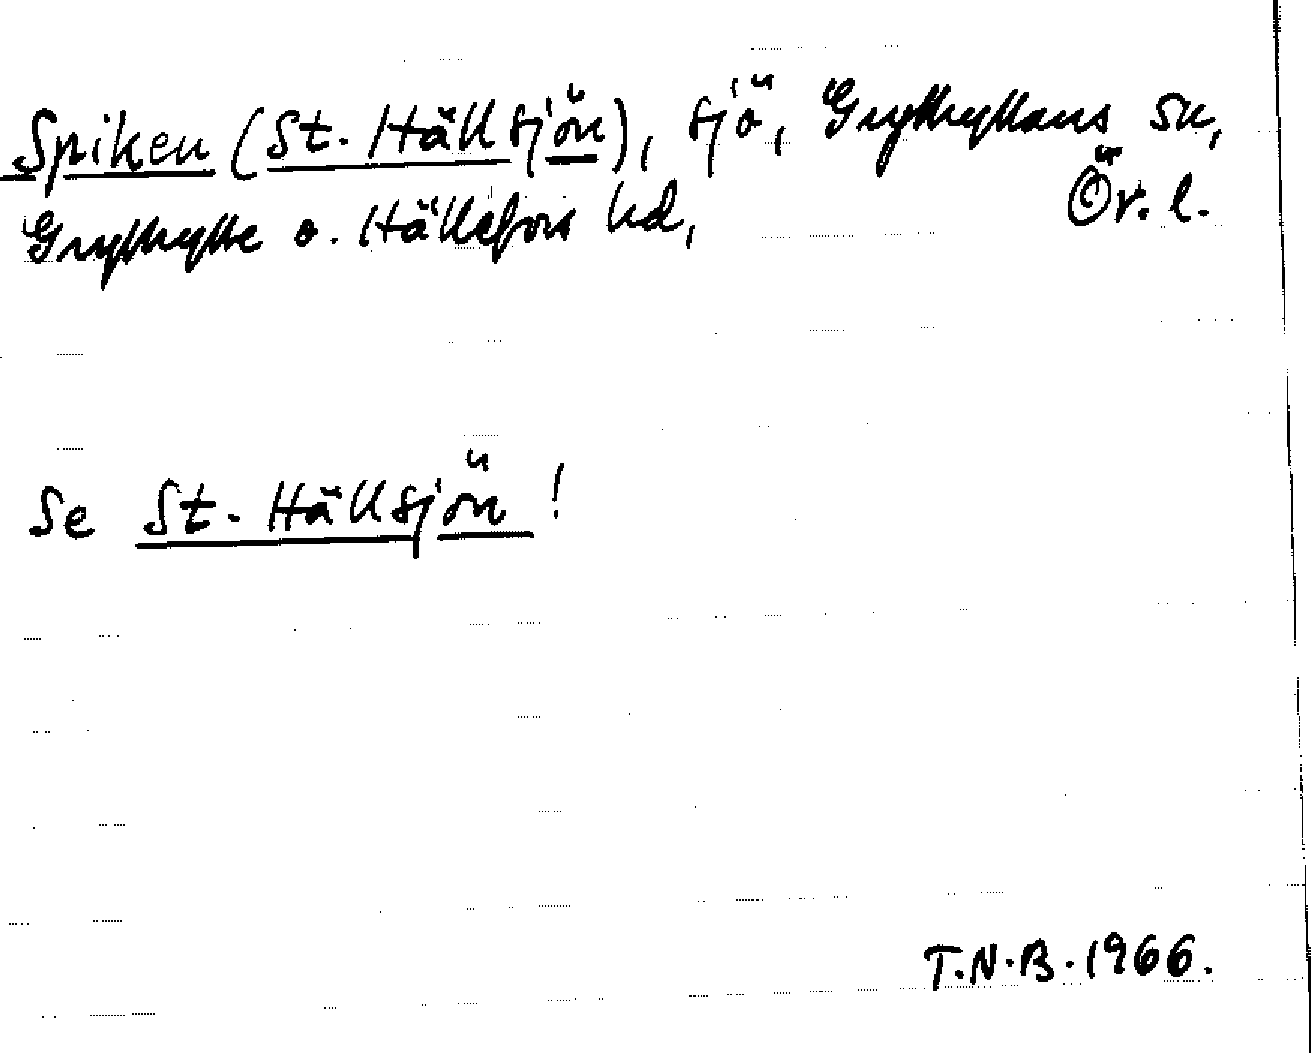 Spiken (St. Hällsjön), sjö, Grythyttans sn,
Grythytte o. Hällefors hd, Ör. l.
Se St. Hällsjön!
T.N.B. 1966.